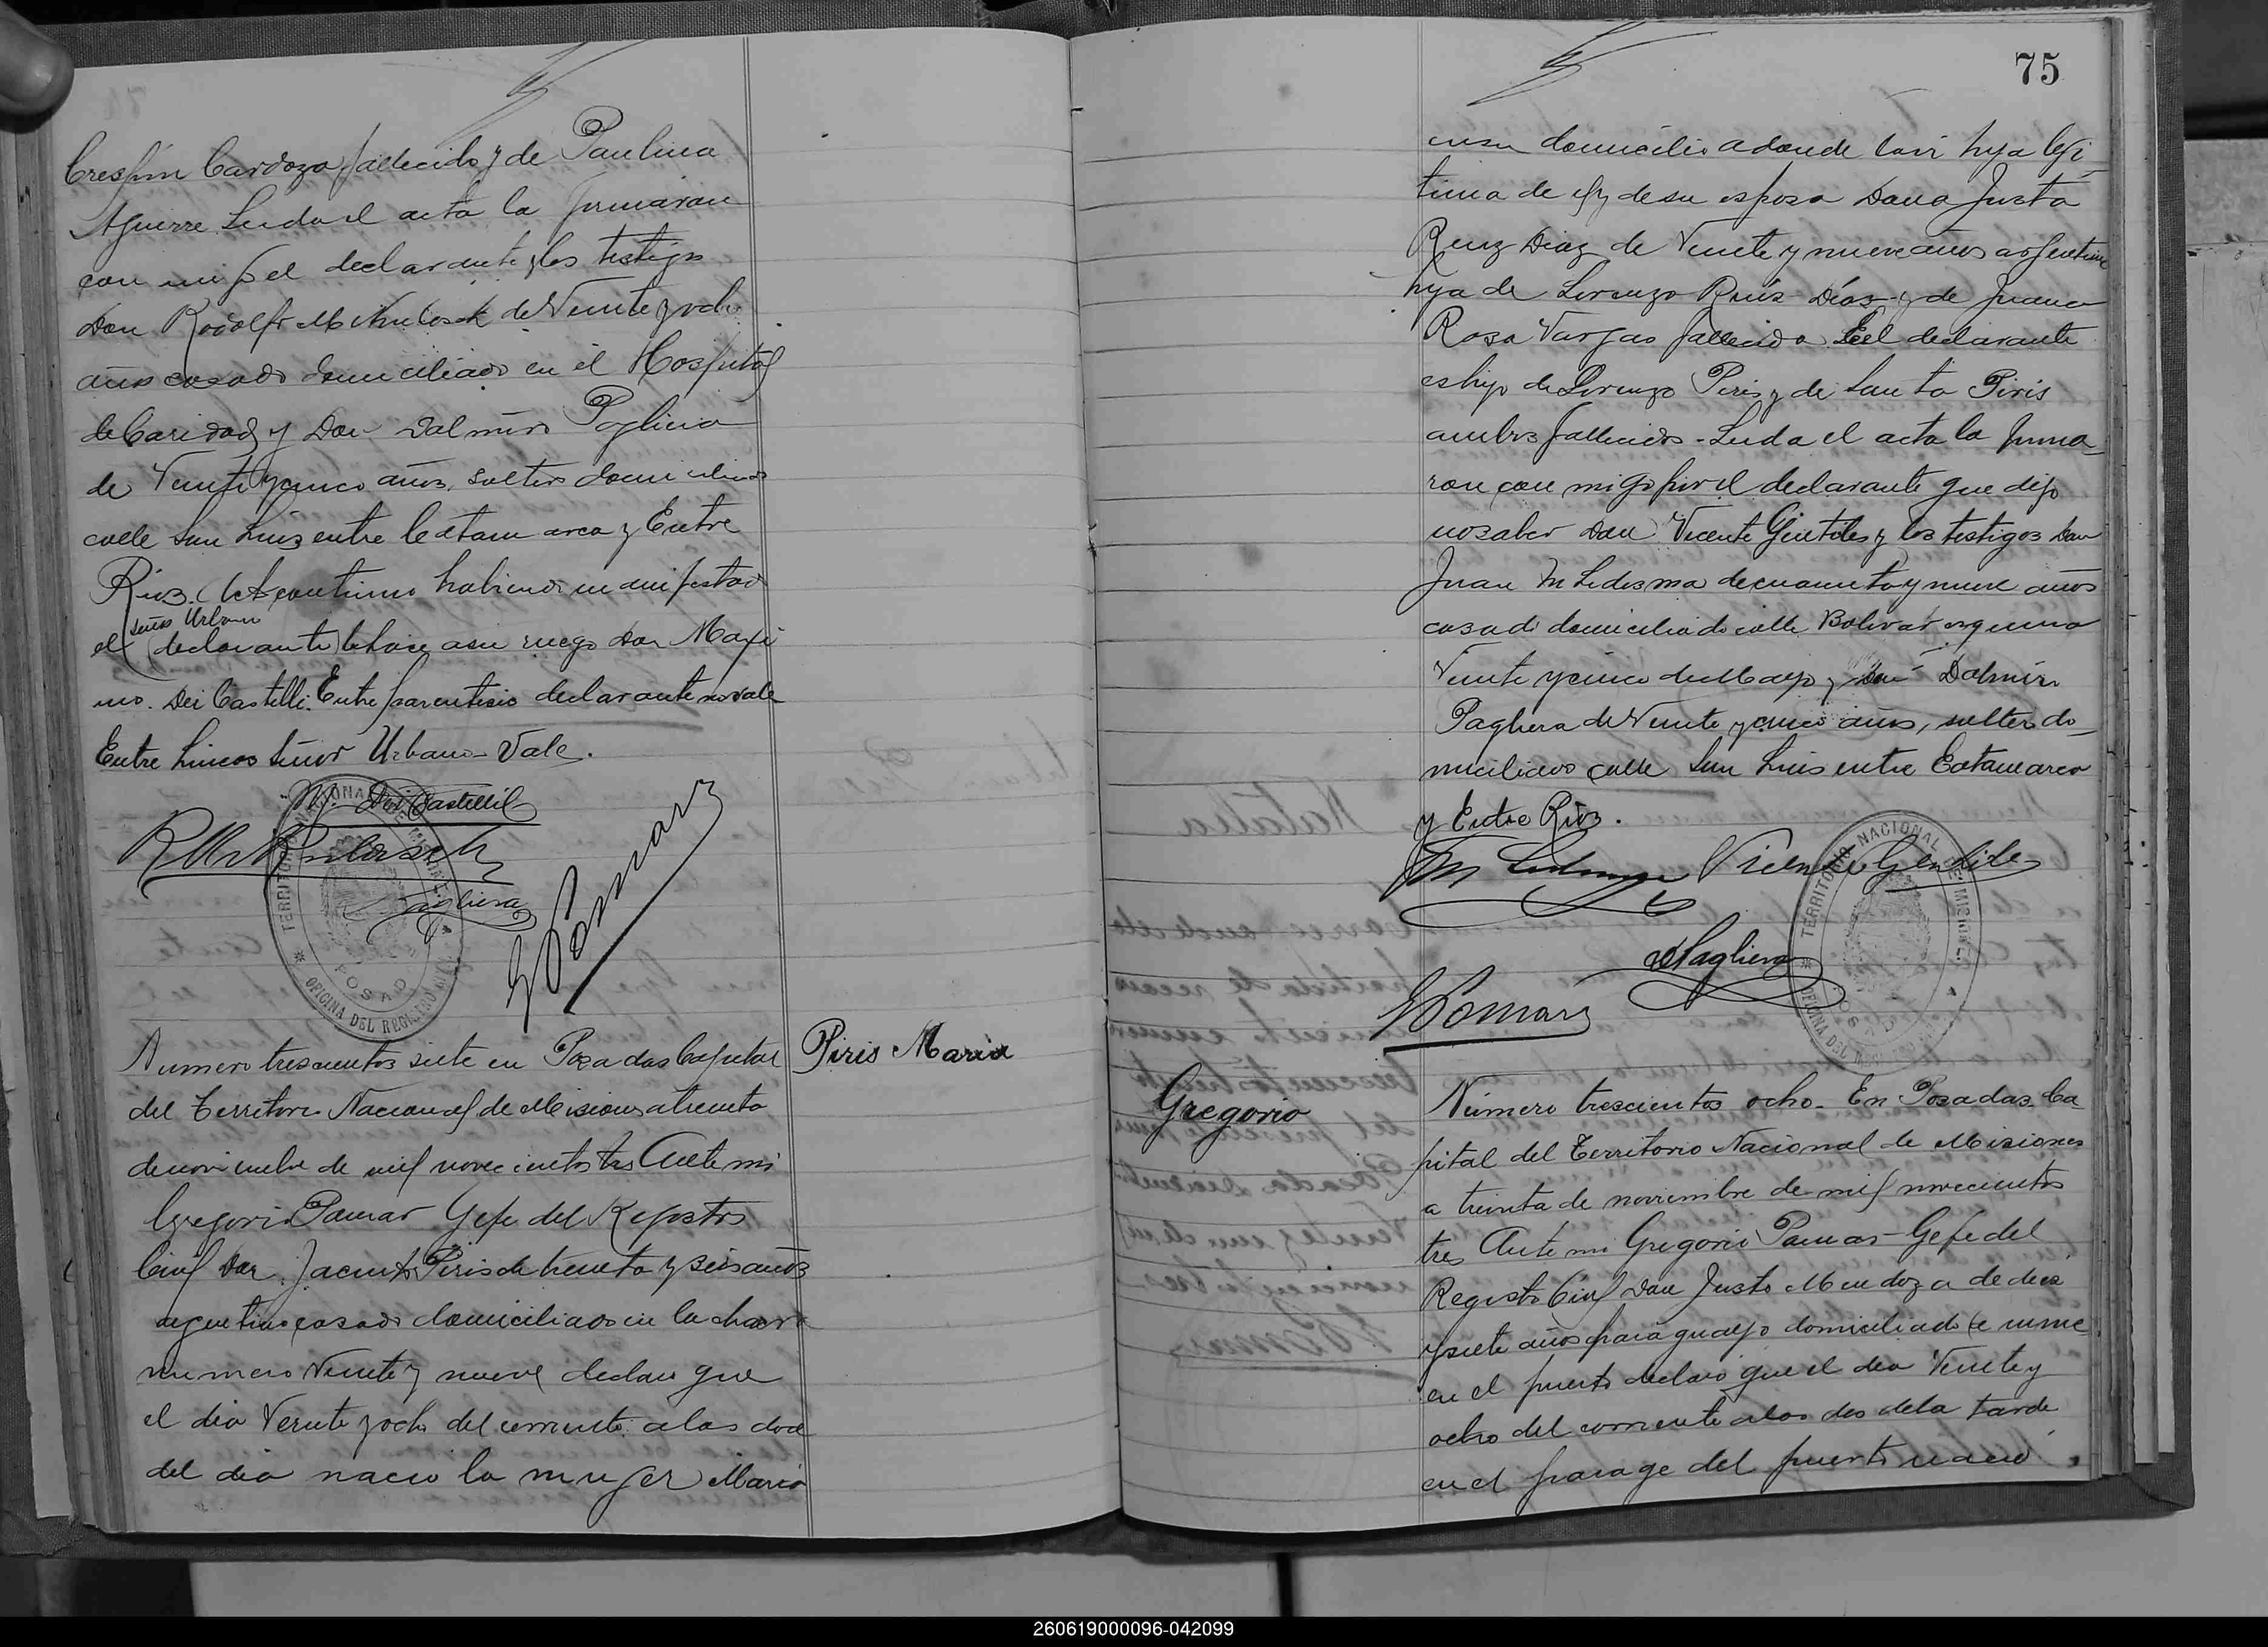 Crespin Cardozo fallecido y de Paulina
Aguirre Leida el acta la firmaran
con migo el declarante y los testigos
Don Rodolfo de Veinte y ocho
años casado domiciliado en el Hospital
de Caridad y Don Dalmiro Pagliera
de Veinte y cinco años, soltero domiciliado
calle San Luis entre Catamarca y Entre
Rios. Argentino habiendo manifestado
señor Urbano
el (declarante) lo hace a su ruego Don Maxi
mo. Dei Castelli. Entre parentesis declarante no vale
Entre lineas señor Urbano - Vale.
M. Dei Castelli
Pagliera
G Pomar
TERRITORIO NACIONAL DE MISIONES
POSADAS
OFICINA DEL REGISTRO CIVIL
Numero trescientos siete en Posadas Capital
del Territorio Nacional de Misiones a treinta
de noviembre de mil novecientos tres Ante mi
Gregorio Pomar Gefe del Registro
Civil Don Jacinto Piris de treinta y seis años
argentino casado domiciliado en la chacra
numero Veinte y nueve declaro que
el dia Veinte y ocho del corriente a las doce
del dia nacio la muger Maria
Piris Maria
75
en su domicilio adonde hija legi
tima de el y de su esposa Dona Justa
Ruiz Diaz de Veinte y nueve años argentina
hija de Lorenzo Ruis Dias y de Juana
Rosa Vargas fallecida El declarante
es hijo de Lorenzo Piris y de Santa Piris
ambos fallecidos - Leida el acta la firma
ron con migo por el declarante que dijo
no saber Don Vicente Gentiles y los testigos Don
Juan M Ledesma de cuarenta y nueve años
casado domiciliado calle Bolivar esquina
Veinte y cinco de Mayo y Don Dalmiro
Pagliera de Veinte y cinco años, soltero do
miciliado calle San Luis entre Catamarca
y Entre Rios.
M Ledesma Vicente Gentile
D Pagliera
G Pomar
TERRITORIO NACIONAL DE MISIONES
POSADAS
OFICINA DEL REGISTRO CIVIL
Gregorio
Número trescientos ocho - En Posadas Ca
pital del Territorio Nacional de Misiones
a treinta de noviembre de mil novecientos
tres Ante mi Gregorio Pomar - Gefe del
Registro Civil Don Justo Mendoza de diez
y siete años paraguayo domiciliado
en el puerto declaro que el dia Veinte y
ocho del corriente a las dos de la tarde
en el parage del puerto nació
260619000096-042099